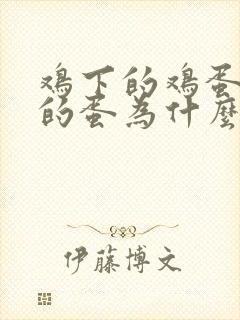 鸡下的鸡蛋
的蛋为什麽
伊藤博文